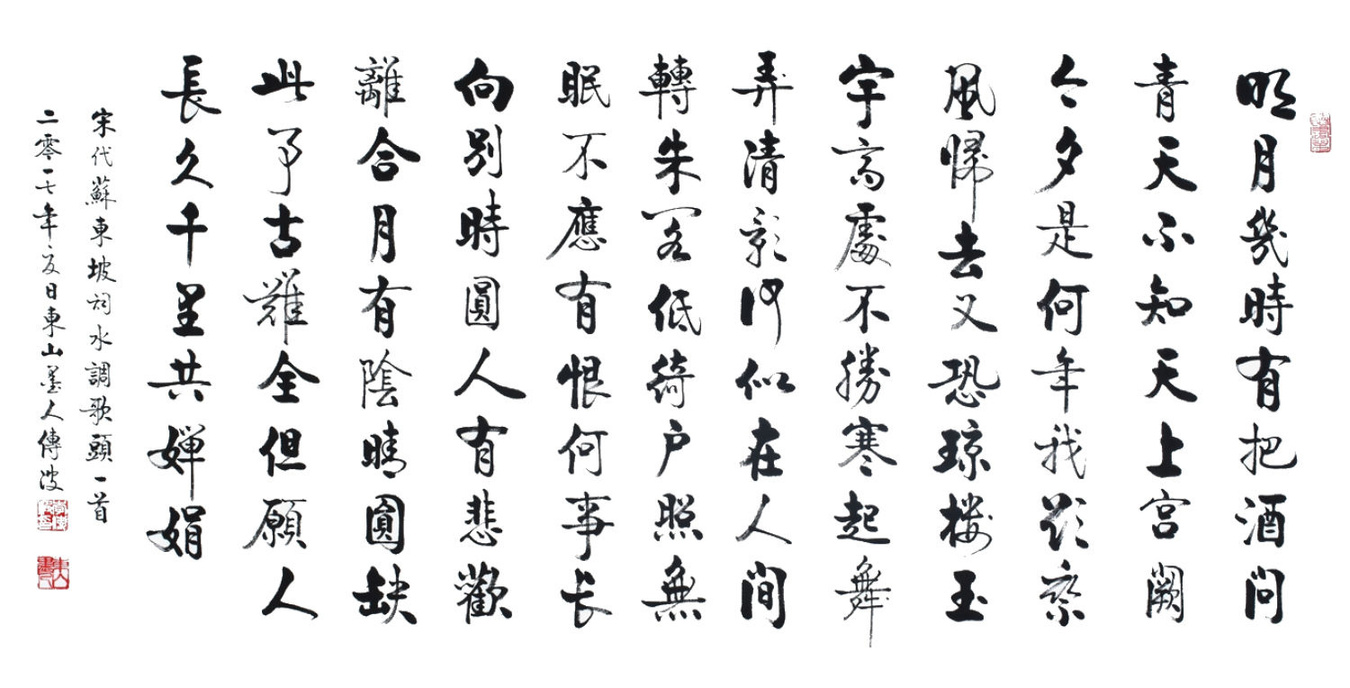 明月幾時有把酒問
青天不知天上宮闕
今夕是何年我欲乘
風歸去又恐瓊樓玉
宇高處不勝寒起舞
弄清影何似在人間
轉朱閣低綺户照無
眠不應有恨何事长
向別時圓人有悲歡
離合月有陰晴圓缺
此事古難全但願人
長久千里共嬋娟
宋代蘇東坡詞水調歌頭一首
二零一七年夏日東山墨人傳波